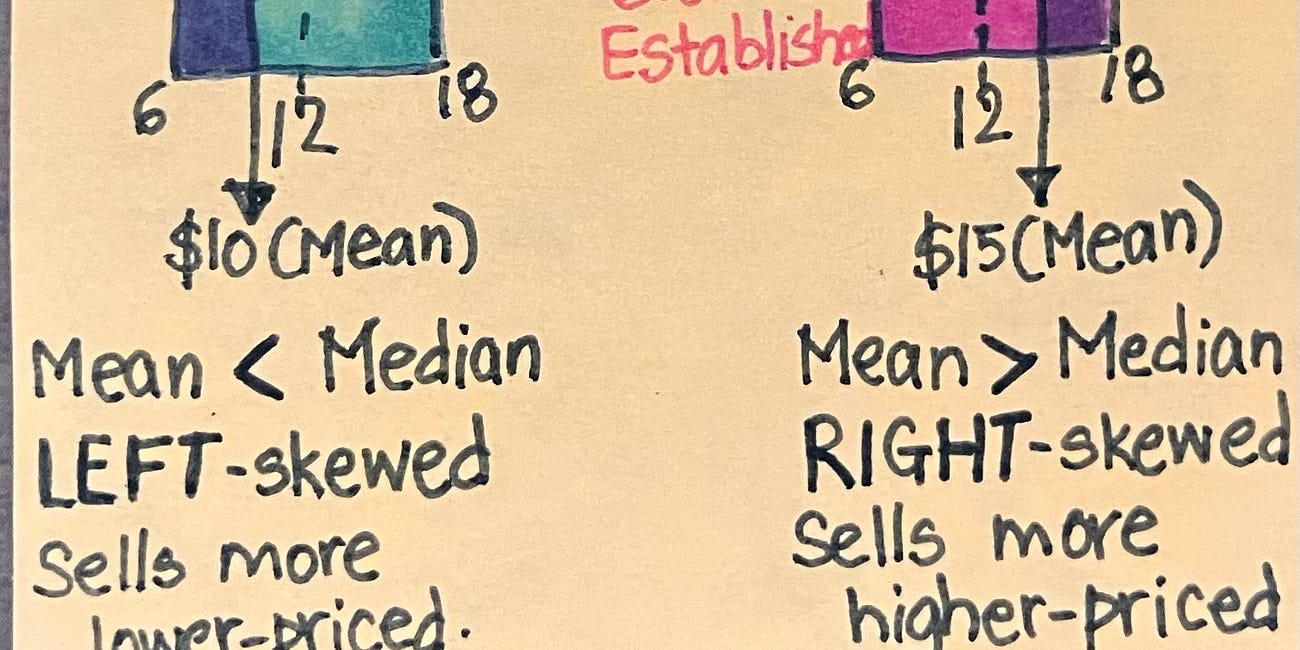 Established
6
12
18
$10 (Mean)
Mean < Median
LEFT-skewed
Sells more
lower-priced.
6
12
18
$15 (Mean)
Mean > Median
RIGHT-skewed
Sells more
higher-priced